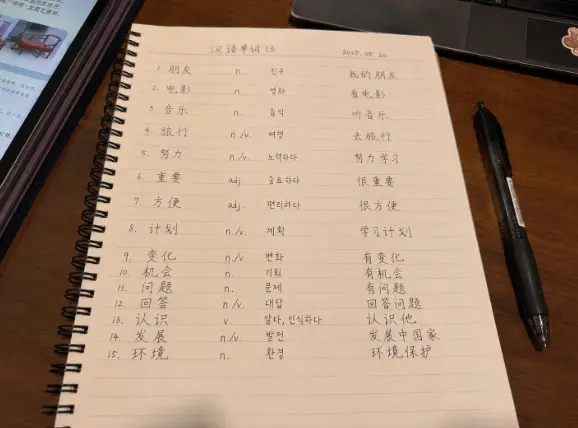 汉语单词 13 2025.05.20
1. 朋友 n. 친구 我的朋友
2. 电影 n. 영화 看电影
3. 音乐 n. 음악 听音乐
4. 旅行 n./v. 여행 去旅行
5. 努力 n./v. 노력하다 努力学习
6. 重要 adj 중요하다 很重要
7. 方便 adj. 편리하다 很方便
8. 计划 n./v. 계획 学习计划
9. 变化 n./v. 변화 有变化
10. 机会 n. 기회 有机会
11. 问题 n. 문제 有问题
12. 回答 n./v. 대답 回答问题
13. 认识 v. 알다, 인식하다 认识他
14. 发展 n./v. 발전 发展中国家
15. 环境 n. 환경 环境保护